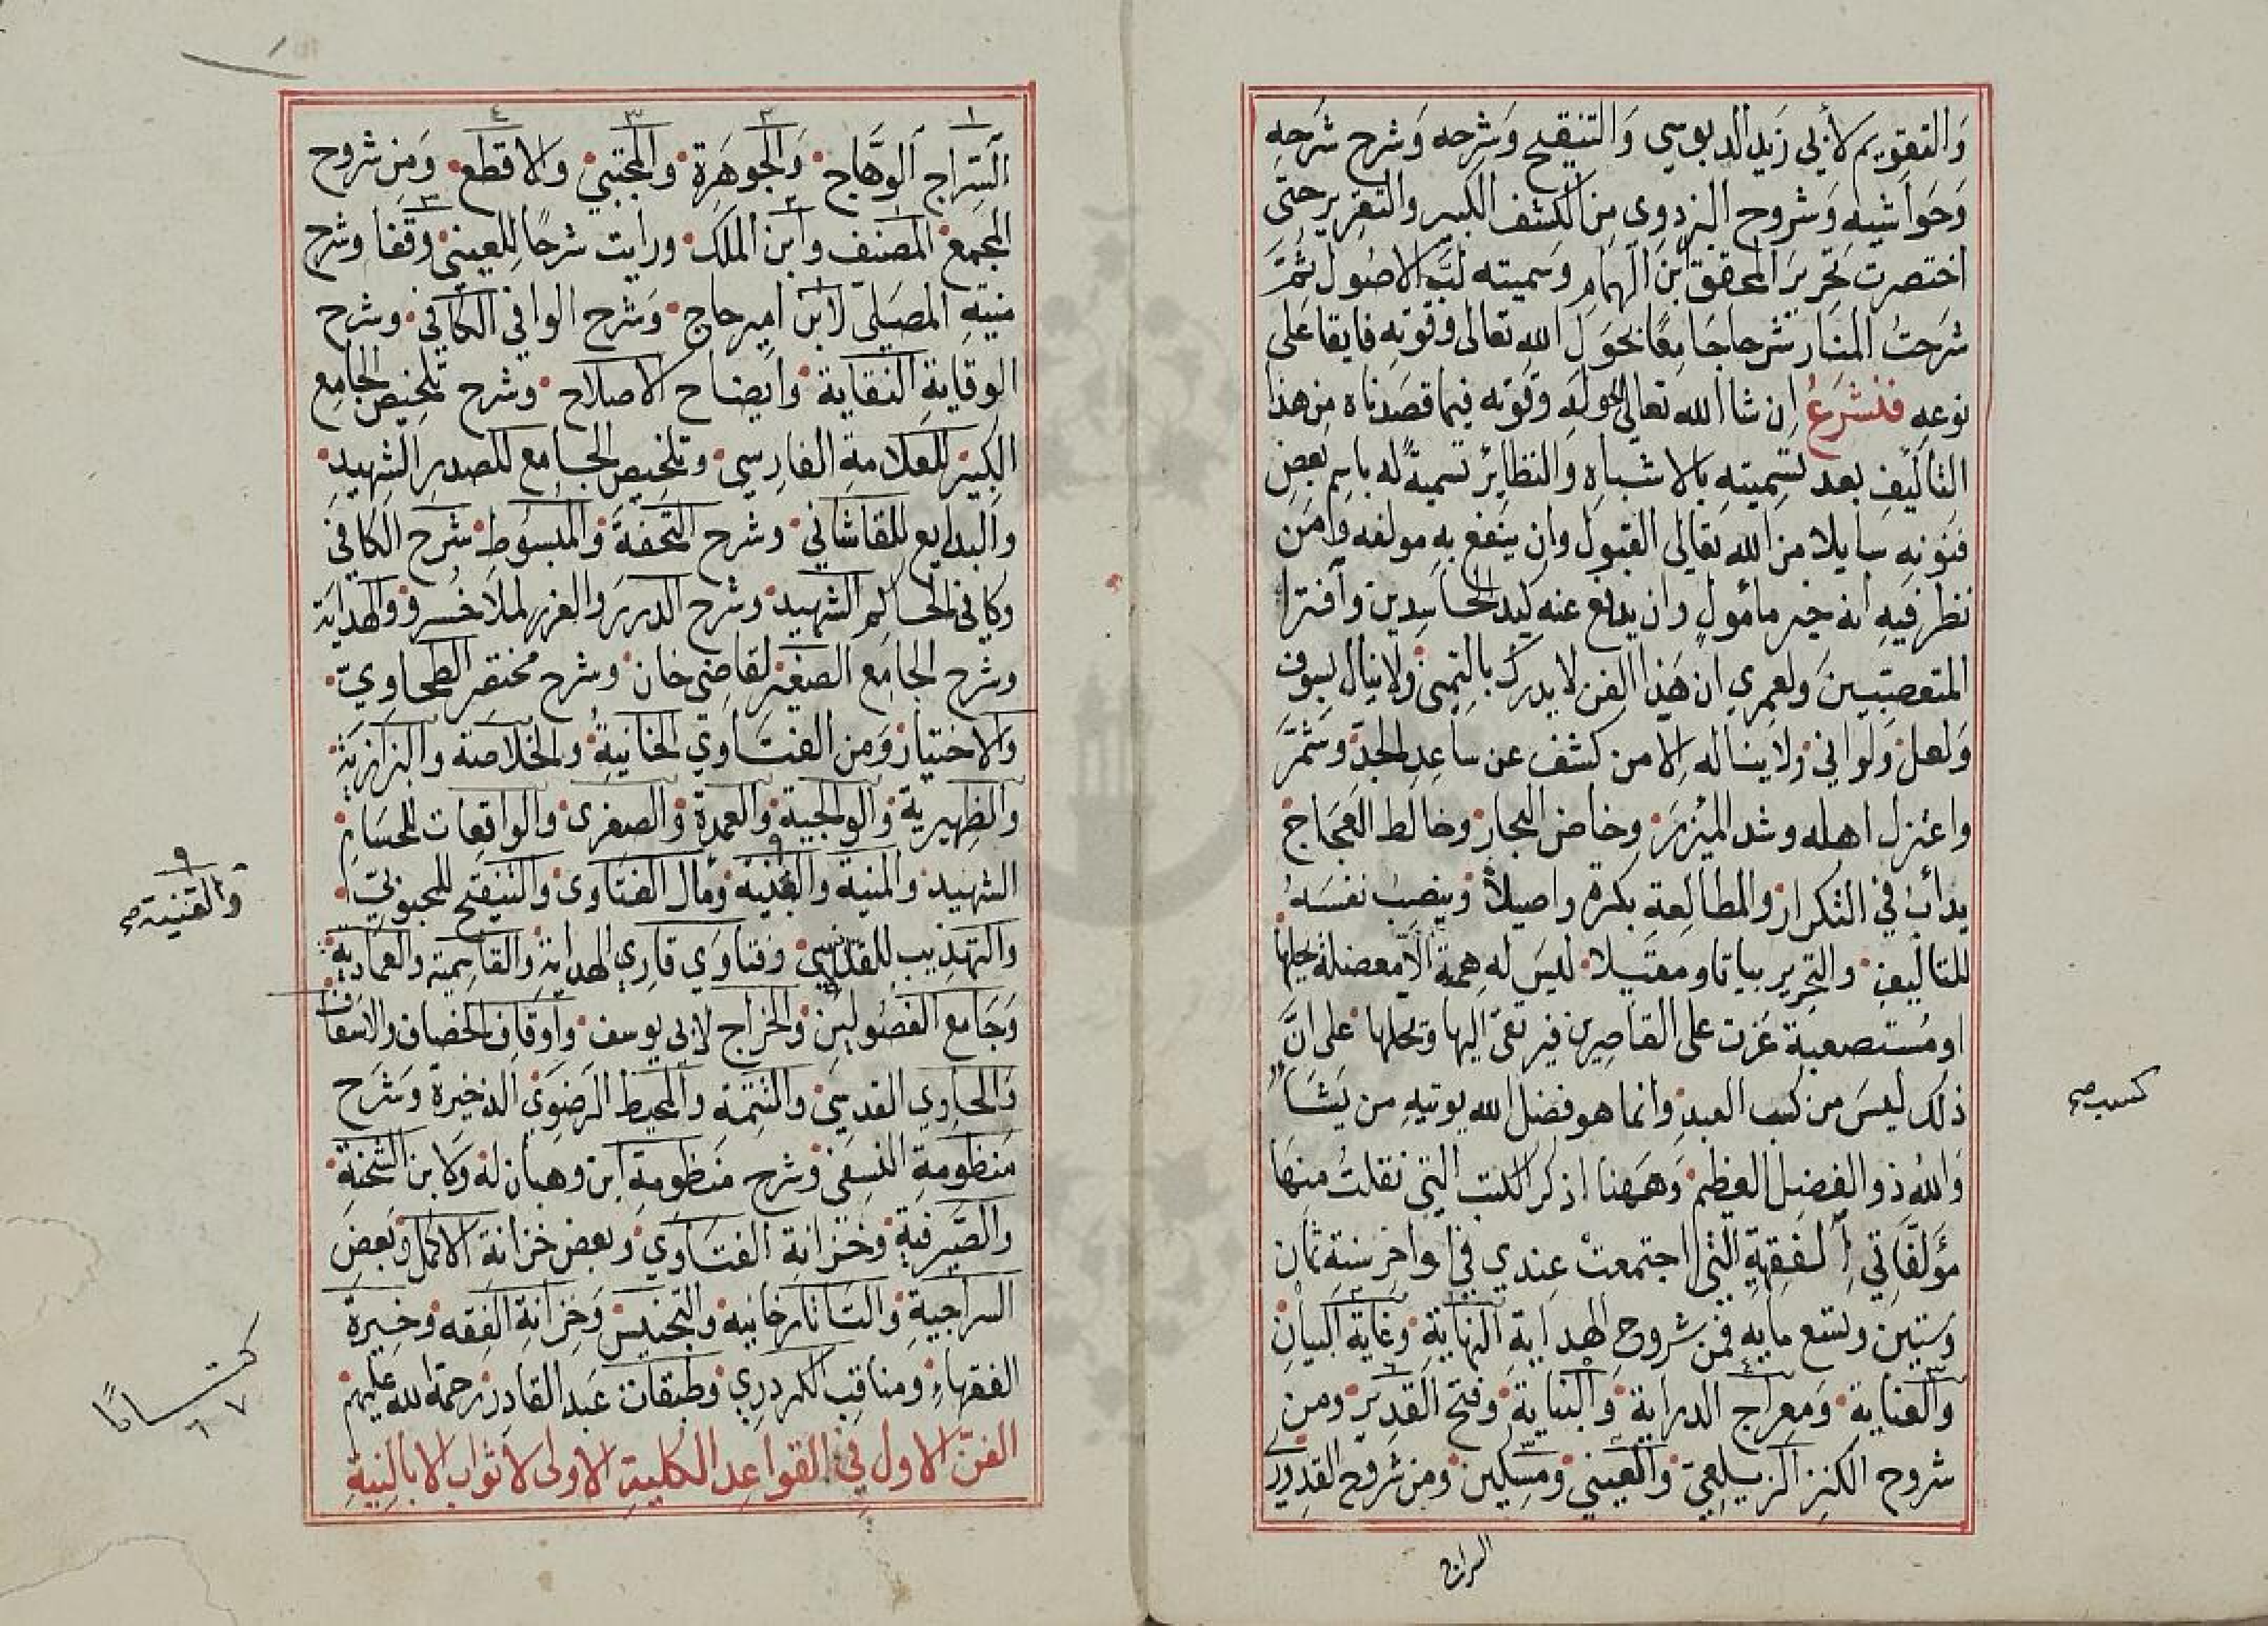 وَالتقويم لأبي زَيد الدبوسي وَالتنقيح وشرحه وَشرح شرَحه
وَحَوَاشيه وَشروح البزدوى من الكشف الكبير والتقرير حتى
اختصرت تحرير المحقق ابن الهمام وَسميته لبّ الاصول ثمَّ
شرَحتُ المنار شرحا جامعًا بحَول الله تعالى وقوته فايقا على
نوعه فلنشرَعْ ان شا الله تعالى بحوله وقوته فيما قصَدناه من هذا
التاليف بعد تسميته بالاشباه والنظاير تسميةً له باسم بعض
فنونه سايلا من الله تعالى القبول وان ينفع به مولفه وامن
نظر فيه انه خير مأمول وان يدفع عنه كيد الحاسدين وافترا
المتعصبين ولعمري ان هَذا الفن لا يدرك بالتمنى ولا ينال بسوف
وَلعل ولواني ولا يناله الا من كشف عن ساعد الجدّ وشمَّر
واعتزل اهله وشد الميزر وخاض البحار وخالط العجاج
يدأب في التكرار والمطالعة بكرة واصيلاً وينصب نفسَه
للتاليف والتحرير بياتا ومقيلا ليسَ له همة الا معضلة يحلها
او مُستصعبة عزت على القاصرين فيرتقى اليها ويحلها على انَّ
ذلك ليسَ من كسب العبد وانما هو فضل الله يوتيه من يَشَا
كسب صح
وَالله ذو الفضل العظيم وَههنا اذكر الكتب التي نقلتُ منهَا
مؤلفاتي الفقهية التي اجتمعتْ عندي في اواخر سنة ثمان
وَستين وتسع مايه فمن شروح الهداية النهاية وغاية البيان
والعناية ومعراج الدراية والبناية وفتح القدير ومن
شروح الكنز الزيلعيّ والعينى ومسكين ومن شروح القدوري
السراج
السّراج الوَهَّاج وَالجوهَرة والمجتبى والاقطع وَمن شروح
المجمع المصنف وابن الملك ورايت شرحًا للعينى وقفا وشرح
منية المصلى لابن امير حاج وَشرح الوافي الكافي وشرح
الوقاية النقاية وايضاح الاصلاح وشرح تلخيص الجامع
الكبير للعلامة الفارسي وتلخيص الجامع للصدر الشهيد
والبدايع للقاشاني وشرح التحفة والمبسوط شرح الكافى
وكافى الحاكم الشهيد وشرح الدرر والغرر لملا خسرو والهداية
وشرح الجامع الصغير لقاضي خان وشرح مختصر الطحاويّ
والاختيار وَمن الفتاوي الخانية والخلاصة والبزازية
والظهيرية والولوالجية والعمدة والصغرى والواقعات للحسام
الشهيد والمنية والغنية ومآل الفتاوى والتنقيح للمحبوبيّ
والقنية صح
والتهذيب للقلانسي وفتاوي قاري الهداية والقاسمية والعمادية
وَجَامع الفصُولين والخراج لابي يوسف وأوقاف الخصاف والاسعاف
والحاوي القدسي والتتمة والمحيط الرضوي الذخيرة وشرح
منظومة النسفى وشرح منظومة ابن وهبان له ولابن الشحنة
والصَّيرفية وخزانة الفتاوي وبعض خزانة الاكمل وبعض
السراجية والتاتارخانيه والتجنيس وخزانة الفقه وخيرة
الفقهاء ومناقب الكردري وطبقات عبد القادر رحمة الله عليهم
الفنّ الاول في القواعد الكلية الاولى لا ثواب الا بالنية